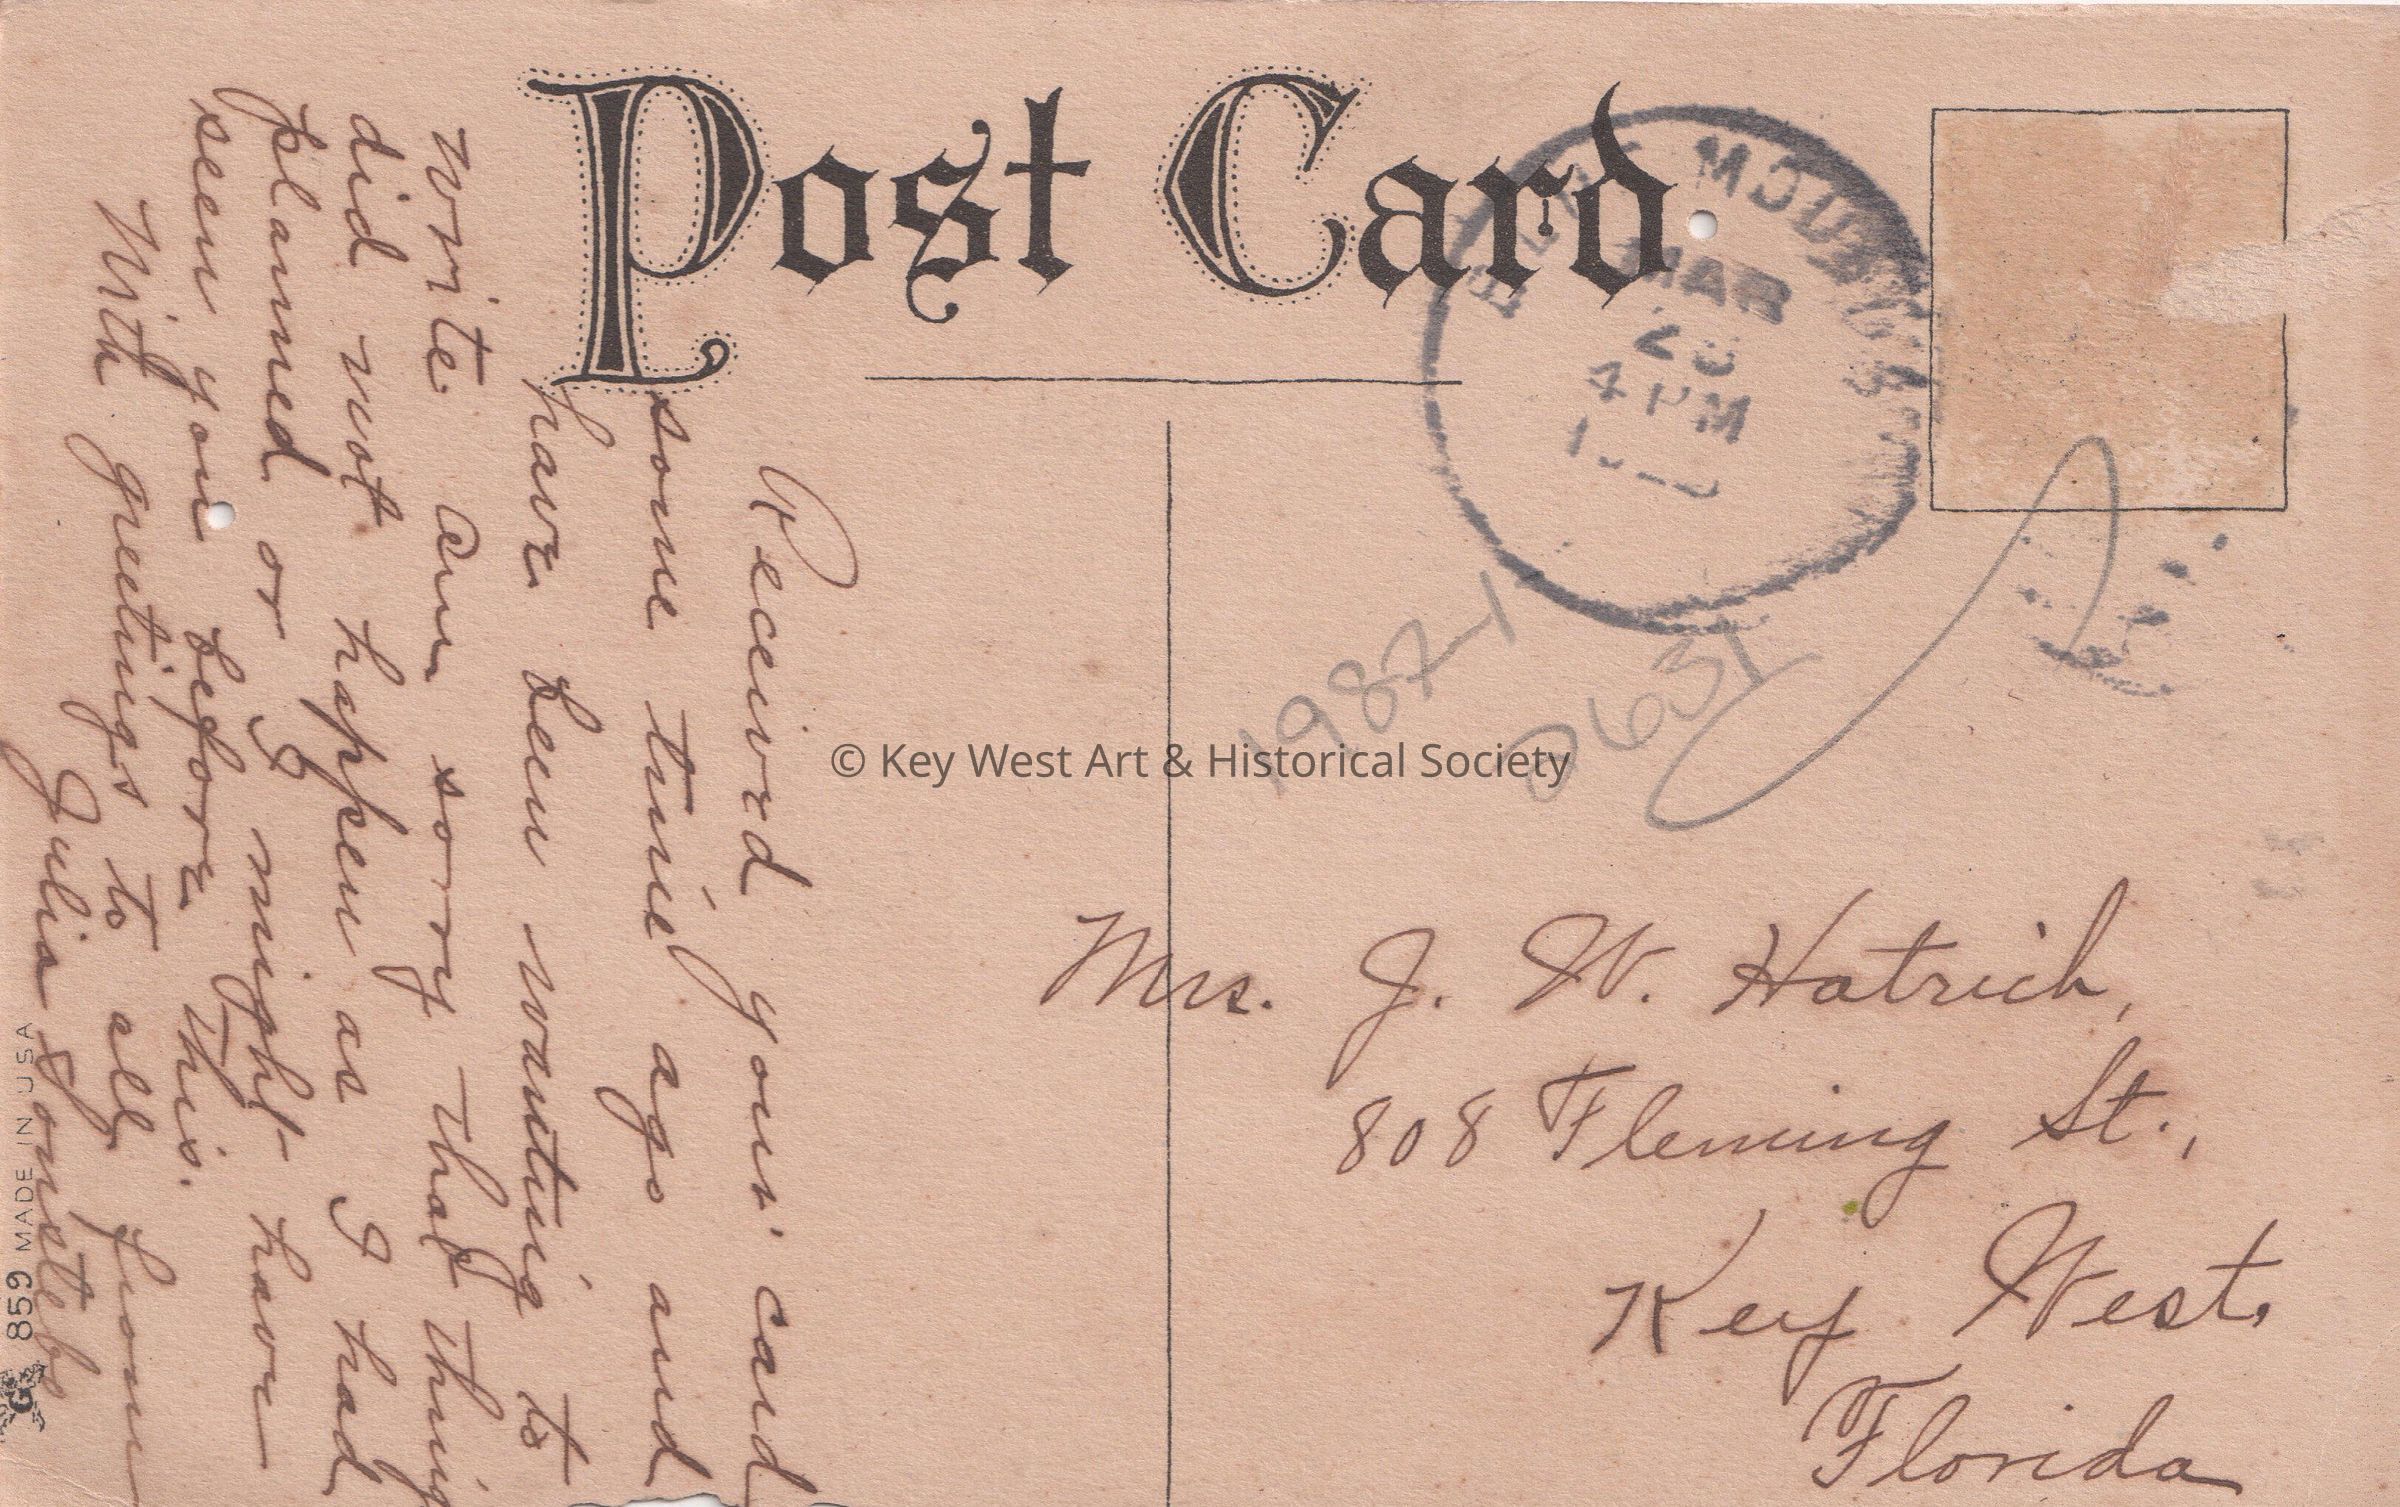 Post Card
MAR
4 PM
1987-1
0631
© Key West Art & Historical Society
Mrs. J. W. Hatrich,
808 Fleming St.,
Key West,
Florida
Received your card
some time ago and
have been wanting to
write. Am sorry that thing
did not happen as I had
planned or I might have
seen you before this.
With greetings to all from
Julia
859 MADE IN USA